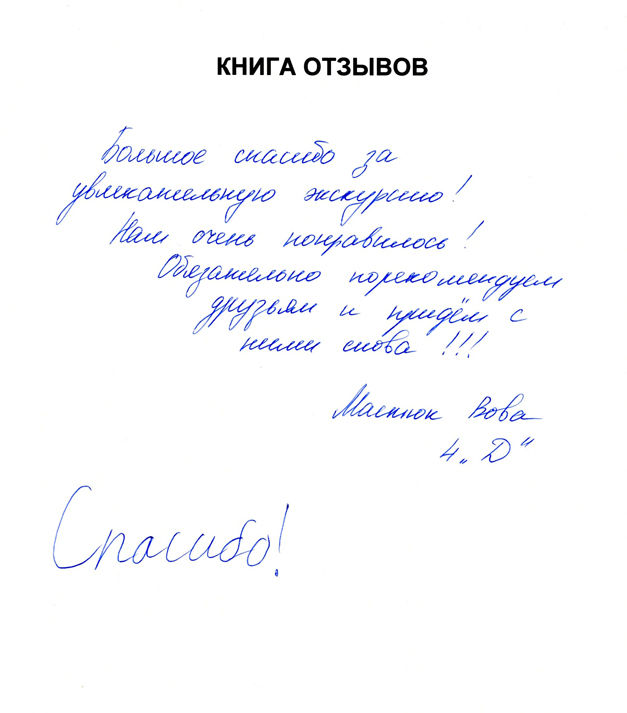 КНИГА ОТЗЫВОВ
Большое спасибо за
увлекательную экскурсию!
Нам очень понравилось!
Обязательно порекомендуем
друзьям и придём с
ними снова !!!
Вова
4 „Д“
Спасибо!